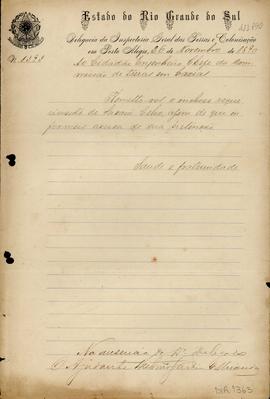 Estado do Rio Grande do Sul
Delegacia da Inspectoria Geral das Terras e Colonisação
em Porto Alegre, 26 de Novembro de 1890
Ao Cidadão Engenheiro Chefe da Com
missão de terras em Caxias
Remetto vos o incluso reque
rimento de afim de que in
formeis acerca de sua pretenção
Saude e fraternidade
Na ausencia do Dr Delegado
O Ajudante
DIR 1363